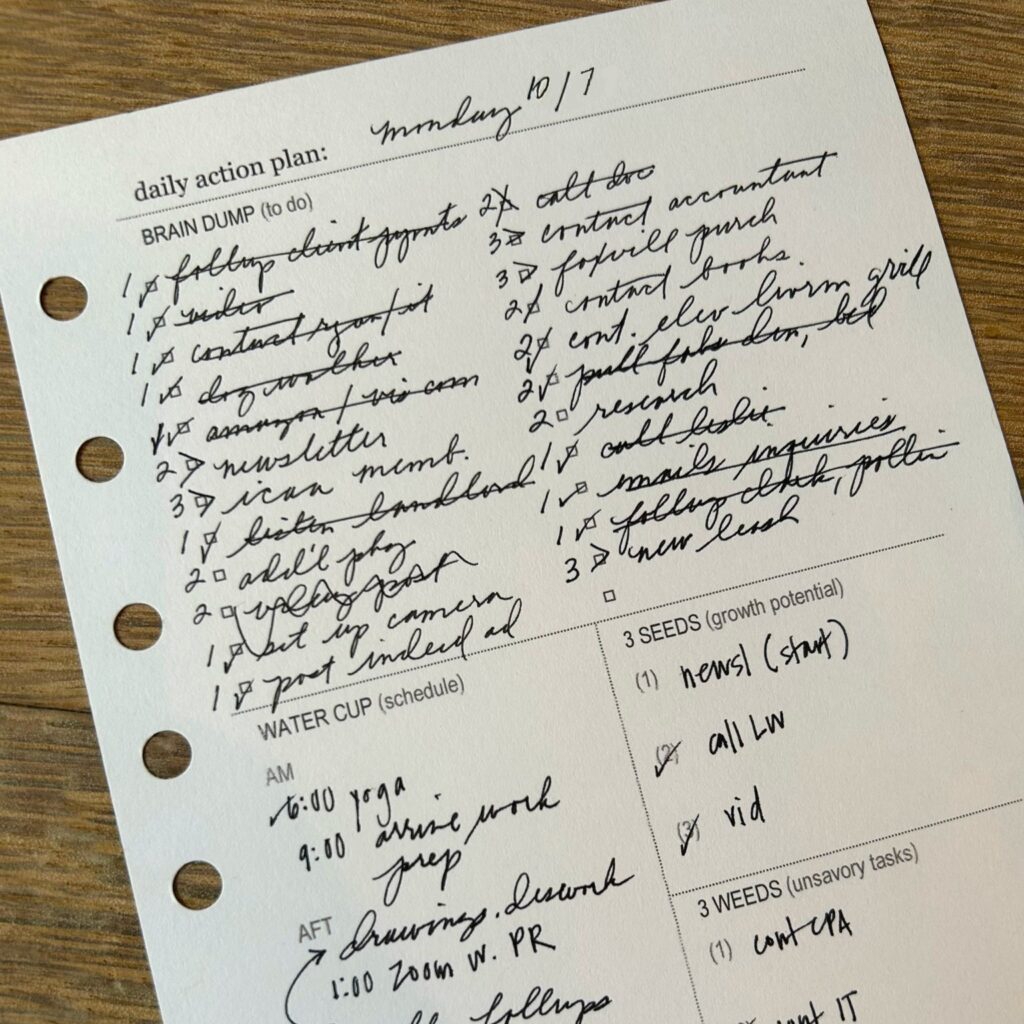 monday 10/7
daily action plan:
BRAIN DUMP (to do)
1 follup client pymts
1 video
1 contact ryan/it
1 dog walker
1 amazon / vis com
2 newsletter
3 ican memb.
1 listen landlord
2 add'l phog
2 post
1 set up camera
1 post indeed ad
2 call doc
3 contact accountant
3 foxvill purch
2 contact books.
2 cont. elev livrm grill
2 pull fabs den, bed
2 research
1 call leslie
1 emails inquiries
1 follup clark, pottin
3 new leash
WATER CUP (schedule)
AM
6:00 yoga
9:00 arrive work
prep
AFT
drawings. deswork
1:00 zoom w. PR
follups
3 SEEDS (growth potential)
(1) newsl (start)
(2) call LW
(3) vid
3 WEEDS (unsavory tasks)
(1) cont CPA
cont IT